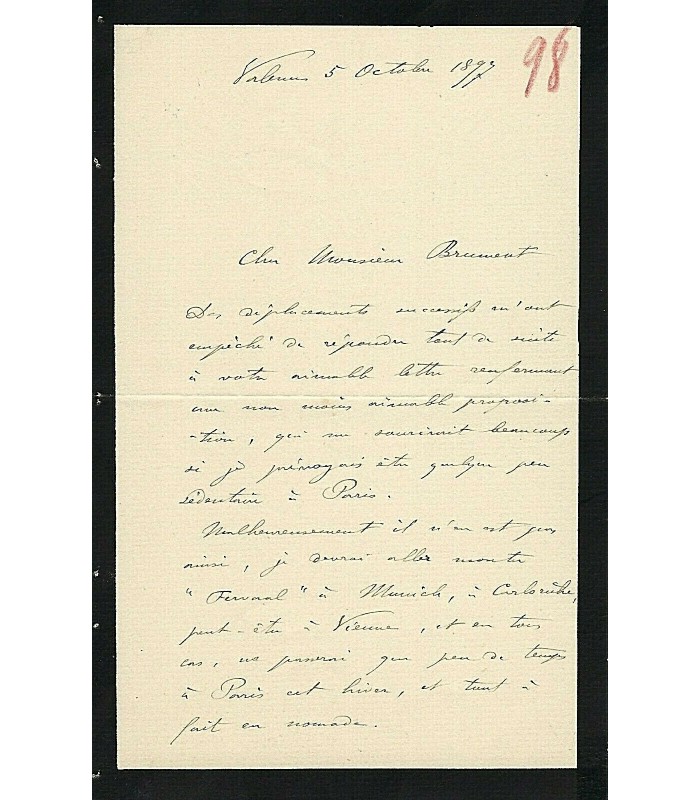 Valence 5 Octobre 1897
98
Cher Monsieur Brument
Des déplacements successifs m'ont
empêché de répondre tout de suite
à votre aimable lettre renfermant
une non moins aimable proposi-
-tion, qui me sourirait beaucoup
si je prévoyais être quelque peu
sédentaire à Paris.
Malheureusement il n'en est pas
ainsi, je devrai aller monter
"Fervaal" à Munich, à Carlsruhe,
peut-être à Vienne, et en tous
cas, ne passerai que peu de temps
à Paris cet hiver, et tout à
fait en nomade.